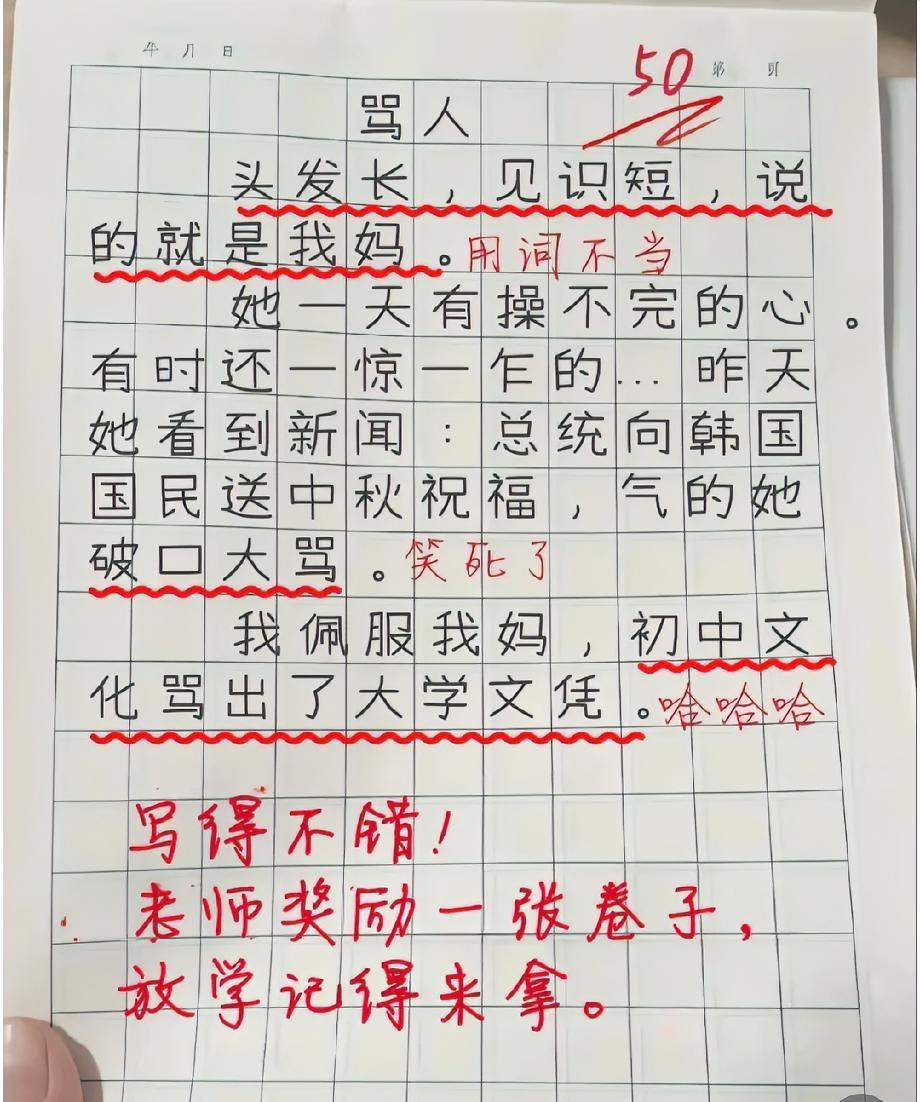 年 月 日
50 第 页
骂人
头发长，见识短，说
的就是我妈。用词不当
她一天有操不完的心。
有时还一惊一乍的…昨天
她看到新闻：总统向韩国
国民送中秋祝福，气的她
破口大骂。笑死了
我佩服我妈，初中文
化骂出了大学文凭。哈哈哈
写得不错！
老师奖励一张卷子，
放学记得来拿。